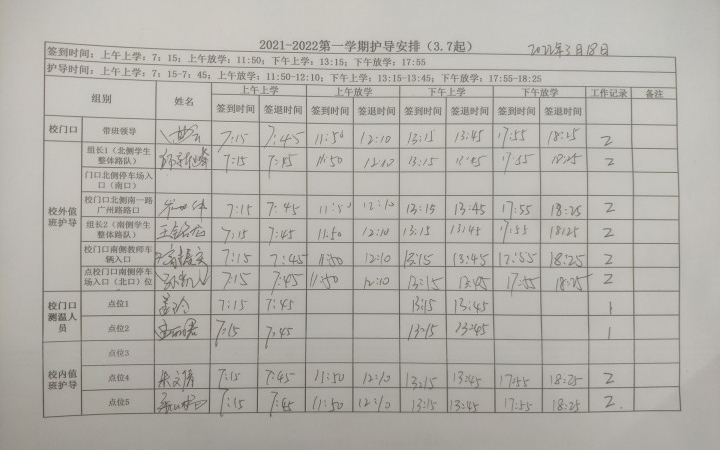 2021-2022第一学期护导安排（3.7起） 2022年3月18日
签到时间：上午上学：7：15；上午放学：11:50；下午上学：13:15；下午放学：17:55
护导时间：上午上学：7：15-7：45；上午放学：11:50-12:10；下午上学：13:15-13:45；下午放学：17:55-18:25
组别 姓名 上午上学 上午放学 下午上学 下午放学 工作记录 备注
签到时间 签退时间 签到时间 签退时间 签到时间 签退时间 签到时间 签退时间
校门口 带班领导 7:15 7:45 11:50 12:10 13:15 13:45 17:55 18:25 2
校外值班护导
组长1（北侧学生整体路队） 7:15 7:45 11:50 12:10 13:15 13:45 17:55 18:25 2
门口北侧停车场入口（南口）
校门口北侧南一路广州路路口 7:15 7:45 11:50 12:10 13:15 13:45 17:55 18:25 2
组长2（南侧学生整体路队） 7:15 7:45 11:50 12:10 13:15 13:45 17:55 18:25 2
校门口南侧教师车辆入口 7:15 7:45 11:50 12:10 13:15 13:45 17:55 18:25 2
点校门口南侧停车场入口（北口）位 7:15 7:45 11:50 12:10 13:15 13:45 17:55 18:25 2
校门口测温人员
点位1 7:15 7:45 13:15 13:45 1
点位2 7:15 7:45 13:15 13:45 1
校内值班护导
点位3
点位4 7:15 7:45 11:50 12:10 13:15 13:45 17:55 18:25 2
点位5 7:15 7:45 11:50 12:10 13:15 13:45 17:55 18:25 2